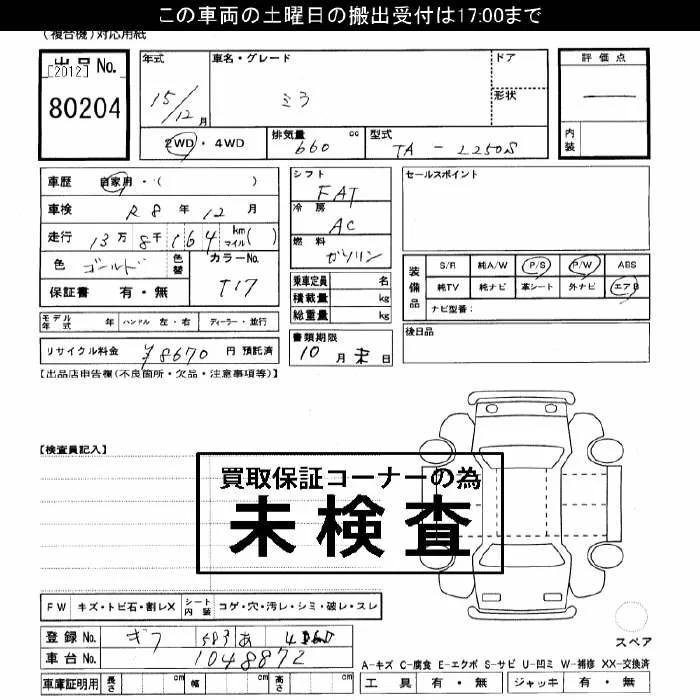 この車両の土曜日の搬出受付は17:00まで
(複合機)対応用紙
出品 No.
[2012]
80204
年式
15/12月
車名・グレード
ミラ
ドア
形状
評価点
内装
2WD・4WD
排気量 660 cc
型式 TA - L250S
車歴 自家用・( )
車検 R8年12月
走行 13万8千164 km マイル( )
色 ゴールド 色替
カラーNo. T17
保証書 有・無
シフト FAT
冷房 AC
燃料 ガソリン
乗車定員 名
積載量 kg
総重量 kg
セールスポイント
装備品
S/R 純A/W P/S P/W ABS
純TV 純ナビ 革シート 外ナビ エアB
ナビ型番:
後日品
モデル年式 年 ハンドル 左・右 ディーラー・並行
リサイクル料金 ¥8670 円 預託済
書類期限
10月末日
【出品店申告欄(不良箇所・欠品・注意事項等)】
【検査員記入】
買取保証コーナーの為
未検査
FW キズ・トビ石・割レX シート内装 コゲ・穴・汚レ・シミ・破レ・スレ
スペア
登録No. ギフ 583 あ
車台No. 1048872
車庫証明用 長さ cm 幅 cm 高さ cm
A-キズ C-腐食 E-エクボ S-サビ U-凹ミ W-補修 XX-交換済
工具 有・無 ジャッキ 有・無